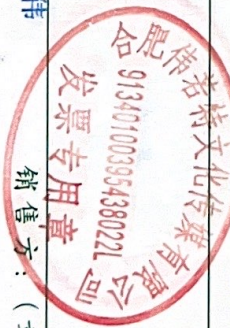 合肥伟若特文化传媒有限公司
91340100395438022L
发票专用章
伟
销售方：（